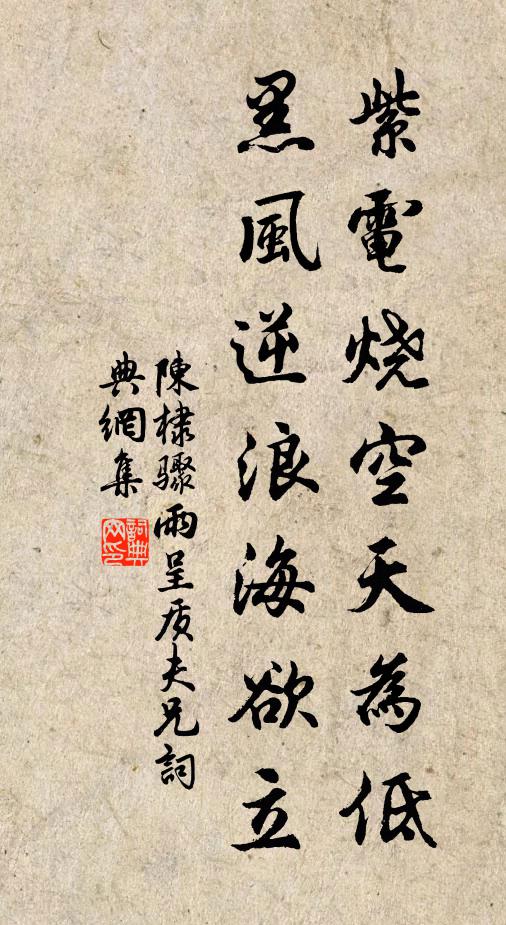 紫電燒空天為低
黑風逆浪海欲立
陳棣驟雨呈质夫兄詞
典網集
詞典
网印